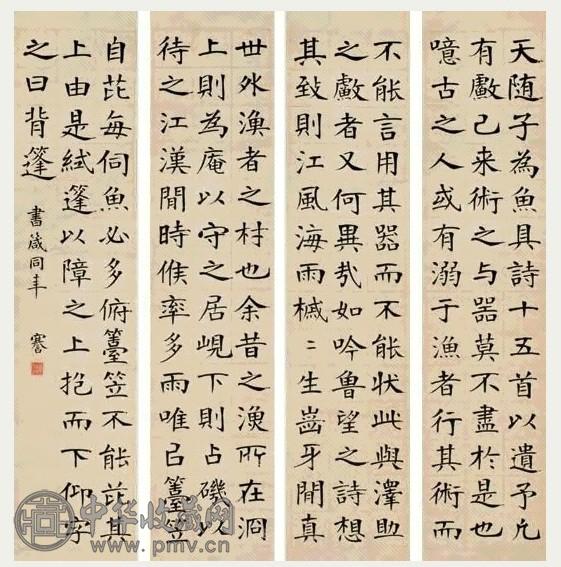 天随子為魚具詩十五首以遺予凢
有已来術之与器莫不盡於是也
噫古之人或有溺于漁者行其術而
不能言用其器而不能狀此與澤助
之者又何異哉如吟魯望之詩想
其致則江風海雨槭〻生齒牙間真
世外漁者之材也余昔之漁所在洄
上則為庵以守之居峴下則占磯以
待之江漢間時候率多雨唯以籉笠
自芘每伺魚必多俯籉笠不能芘其
上由是織篷以障之上抱而下仰字
之曰背篷
書箴同年 謇
中华收藏网
www.pmv.cn